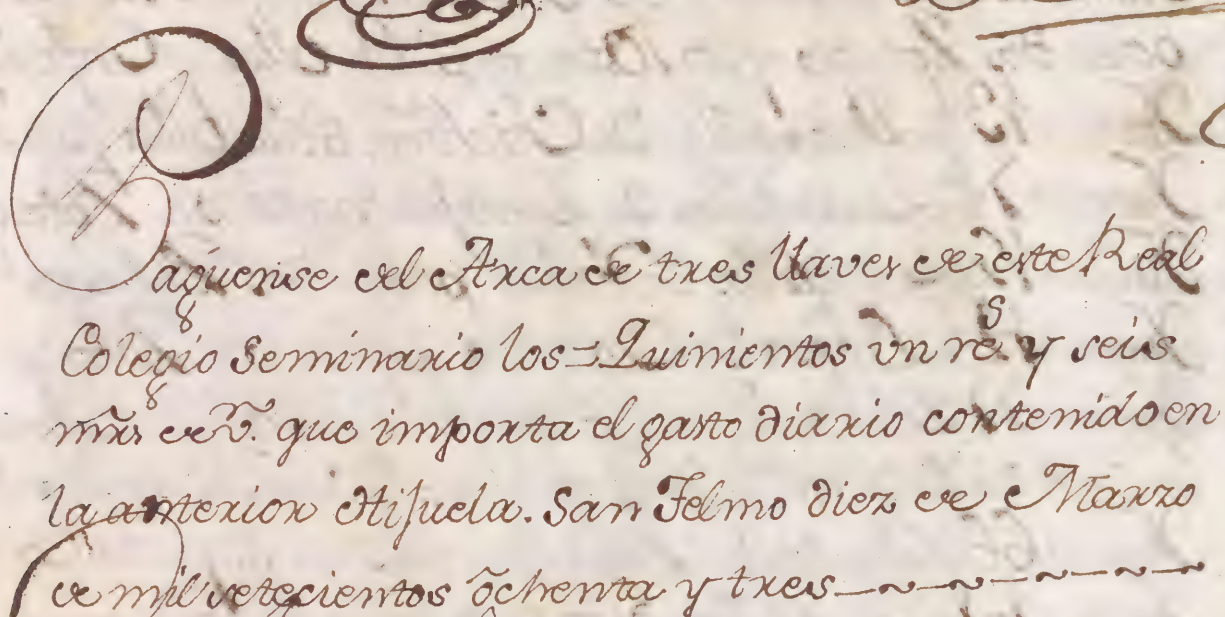 Paguense del Arca de tres llaves de este Real
Colegio Seminario los=Quinientos un rs. y seis
mrs. de vn. que importa el gasto diario contenido en
la anterior Hijuela. San Telmo diez de Marzo
de mil setecientos ochenta y tres